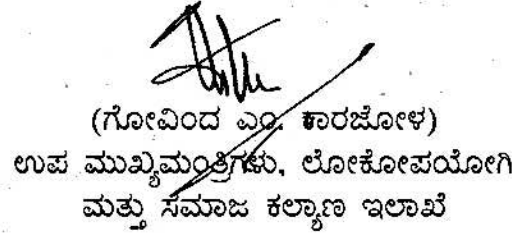 (ಗೋವಿಂದ ಎಂ. ಕಾರಜೋಳ)
ಉಪ ಮುಖ್ಯಮಂತ್ರಿಗಳು, ಲೋಕೋಪಯೋಗಿ
ಮತ್ತು ಸಮಾಜ ಕಲ್ಯಾಣ ಇಲಾಖೆ